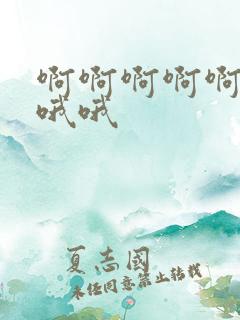 啊啊啊啊啊
哦哦
夏志國
未经同意禁止转载